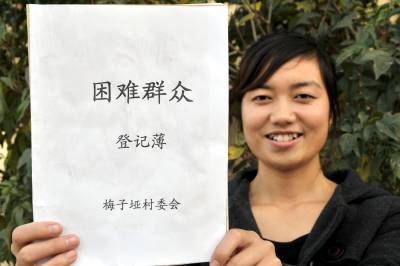 困难群众
登记薄
梅子垭村委会